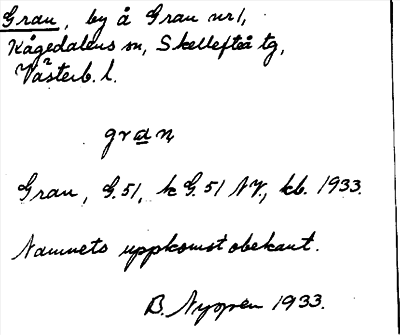 Gran, by å Gran nr 1,
Kågedalens sn, Skellefteå tg,
Västerb. l.
gran
Gran, G. 51, k G. 51 NV, kb. 1933.
Namnets uppkomst obekant.
B. Nyppen 1933.